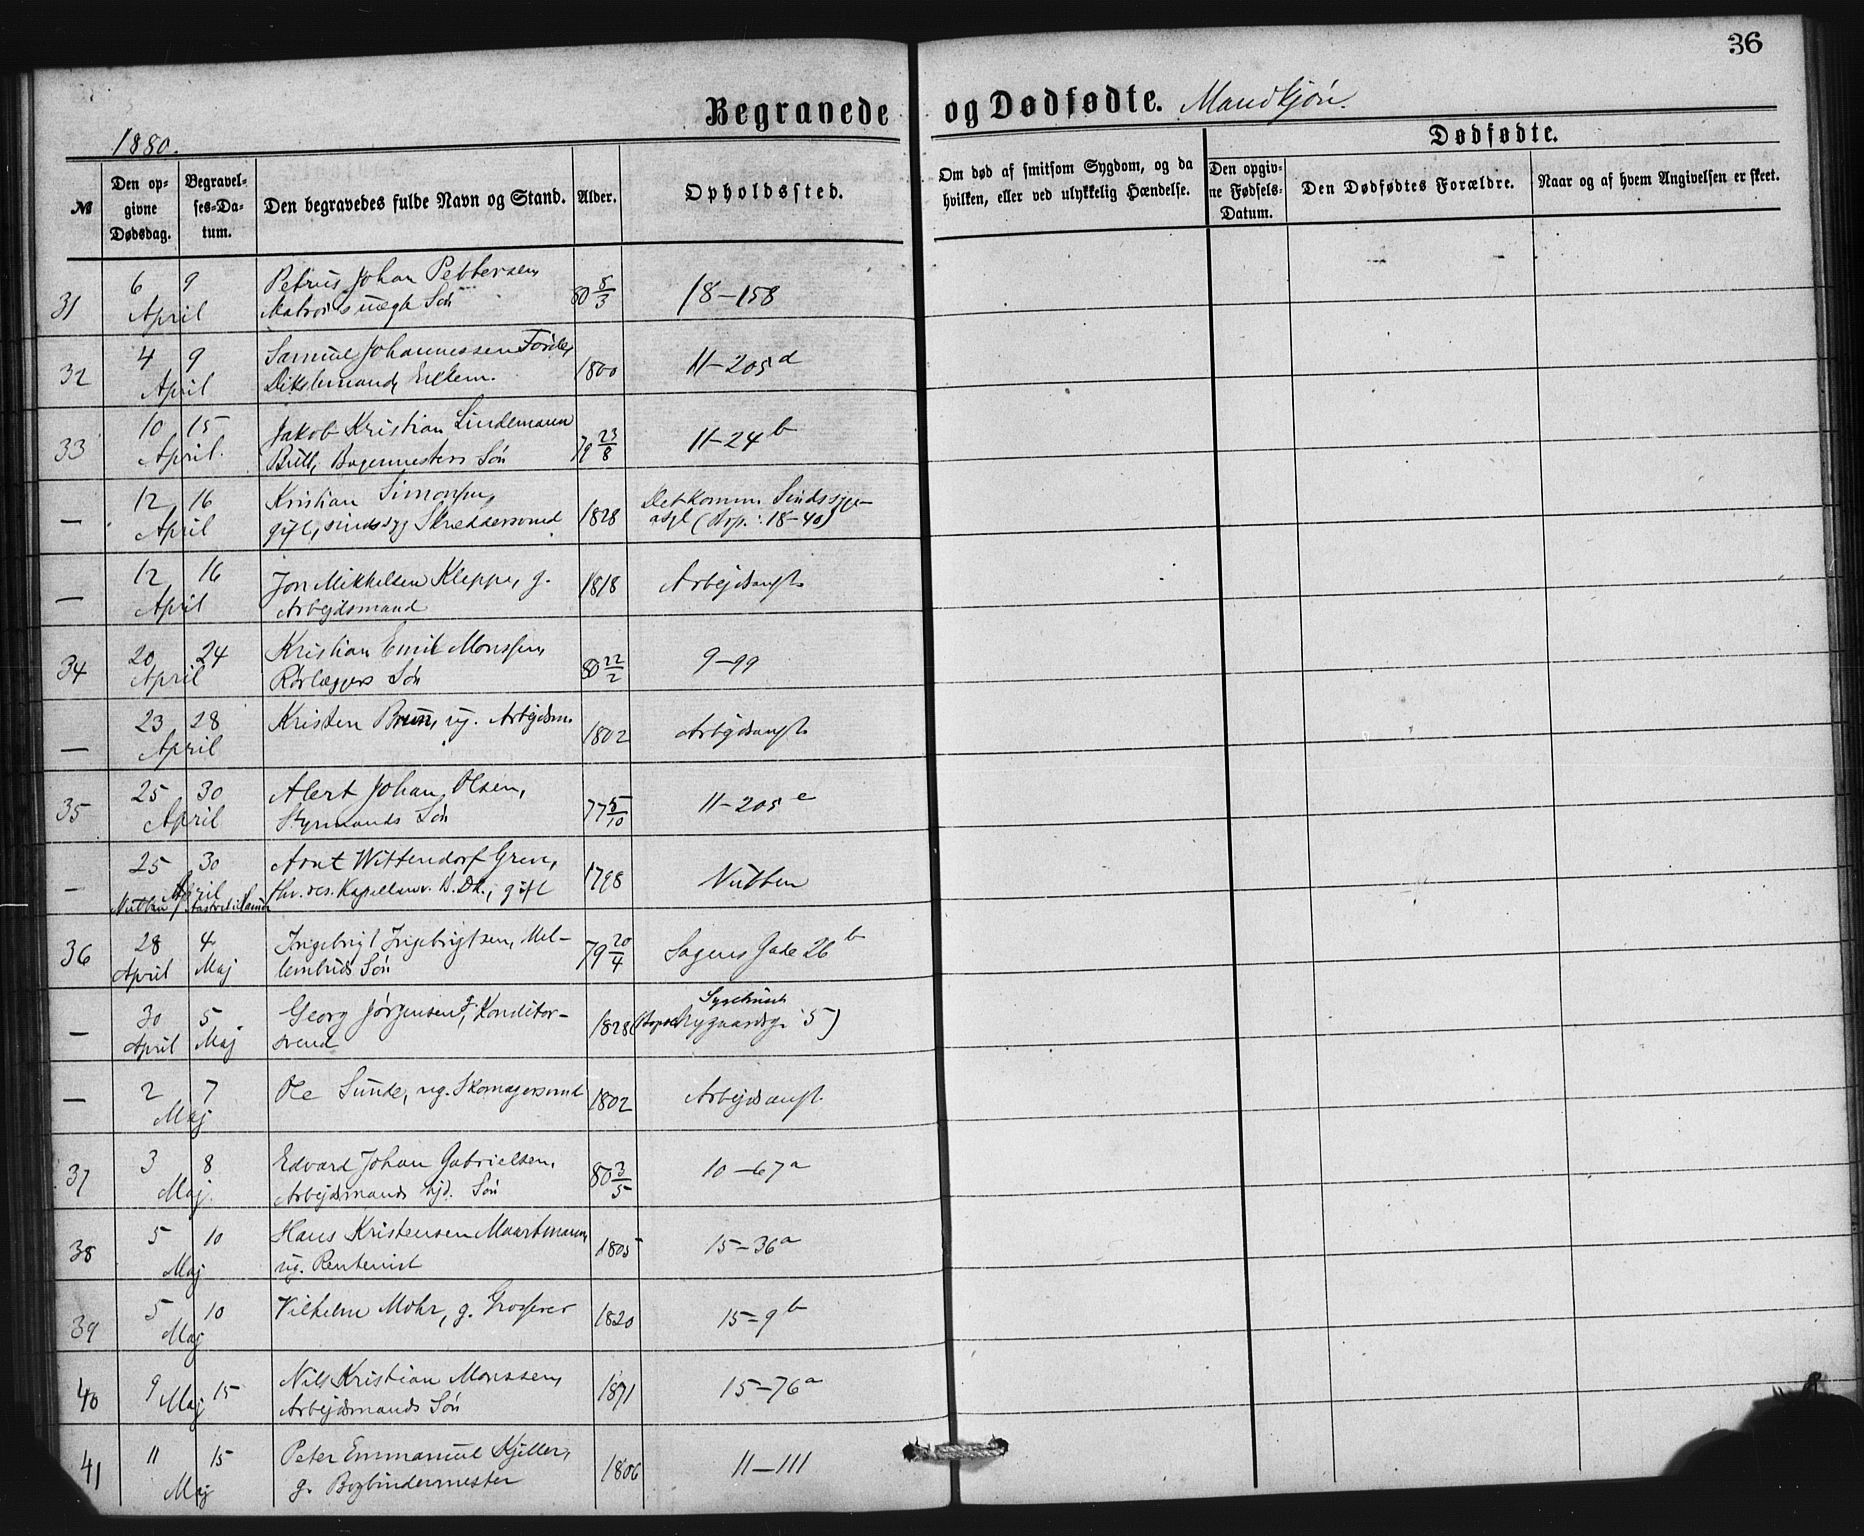 36
Begravede og Dødfødte. Mandkjøn.
1880.
Dødfødte.
№
Den opgivne Dødsdag.
Begravelses-Datum.
Den begravedes fulde Navn og Stand.
Alder.
Opholdssted.
Om død af smitsom Sygdom, og da hvilken, eller ved ulykkelig Hændelse.
Den opgivne Fødsels-Datum.
Den Dødfødtes Forældre.
Naar og af hvem Angivelsen er skeet.
31 6 9 Petrus Johan Pettersen, 80 5/3 18–158
April Matros uægte Søn
32 4 9 Samuel Johannessen 1800 11–205 d
April Enkem.
33 10 15 Jakob Kristian Lindemann 79 23/8 11–24 b
April. Bull, Bagermesters Søn
— 12 16 Kristian Simonsen, 1828 Det komm. Sindssyge-
April gift, sindssyg Skreddersvend asyl (Bop.: 18–40)
— 12 16 Jon Mikkelsen Kleppe, g. 1818 Arbejdsanst.
April Arbejdsmand
34 20 24 Kristian Emil Monssen, 80 22/2 9–99
April Rørlæggers Søn
— 23 28 Kristen Brun, ug. Arbejdsm. 1802 Arbejdsanst.
April
35 25 30 Alert Johan Olsen, 77 5/10 11–205 e
April Styrmands Søn
— 25 30 Arnt Wittendorf Greve, 1798
April fhv. res. Kapellan, gift
36 28 4 Ingebrigt Ingebrigtsen, 79 20/4 Gade 26 b
April Maj Søn
— 30 5 Georg Jørgensen, g. Konditor- 1828 Sygehuset
April Maj svend 5)
— 2 7 Ole Sunde, ug. Skomagersvend 1802 Arbejdsanst.
Maj
37 3 8 Edvard Johan Gabrielsen, 80 3/5 10–67 a
Maj. Arbejdsmands hjd. Søn
38 5 10 Hans Kristensen Maartmann, 1805 15–36 a
Maj ug. Rentenist
39 5 10 Vilhelm Mohr, g. Grosserer 1820 15–9 b
Maj
40 9 15 Nils Kristian Monssen, 1871 15–76 a
Maj Arbejdsmands Søn
41 11 15 Peter Emmanuel Kjeller, 1806 11–111
Maj g. Bogbindermester